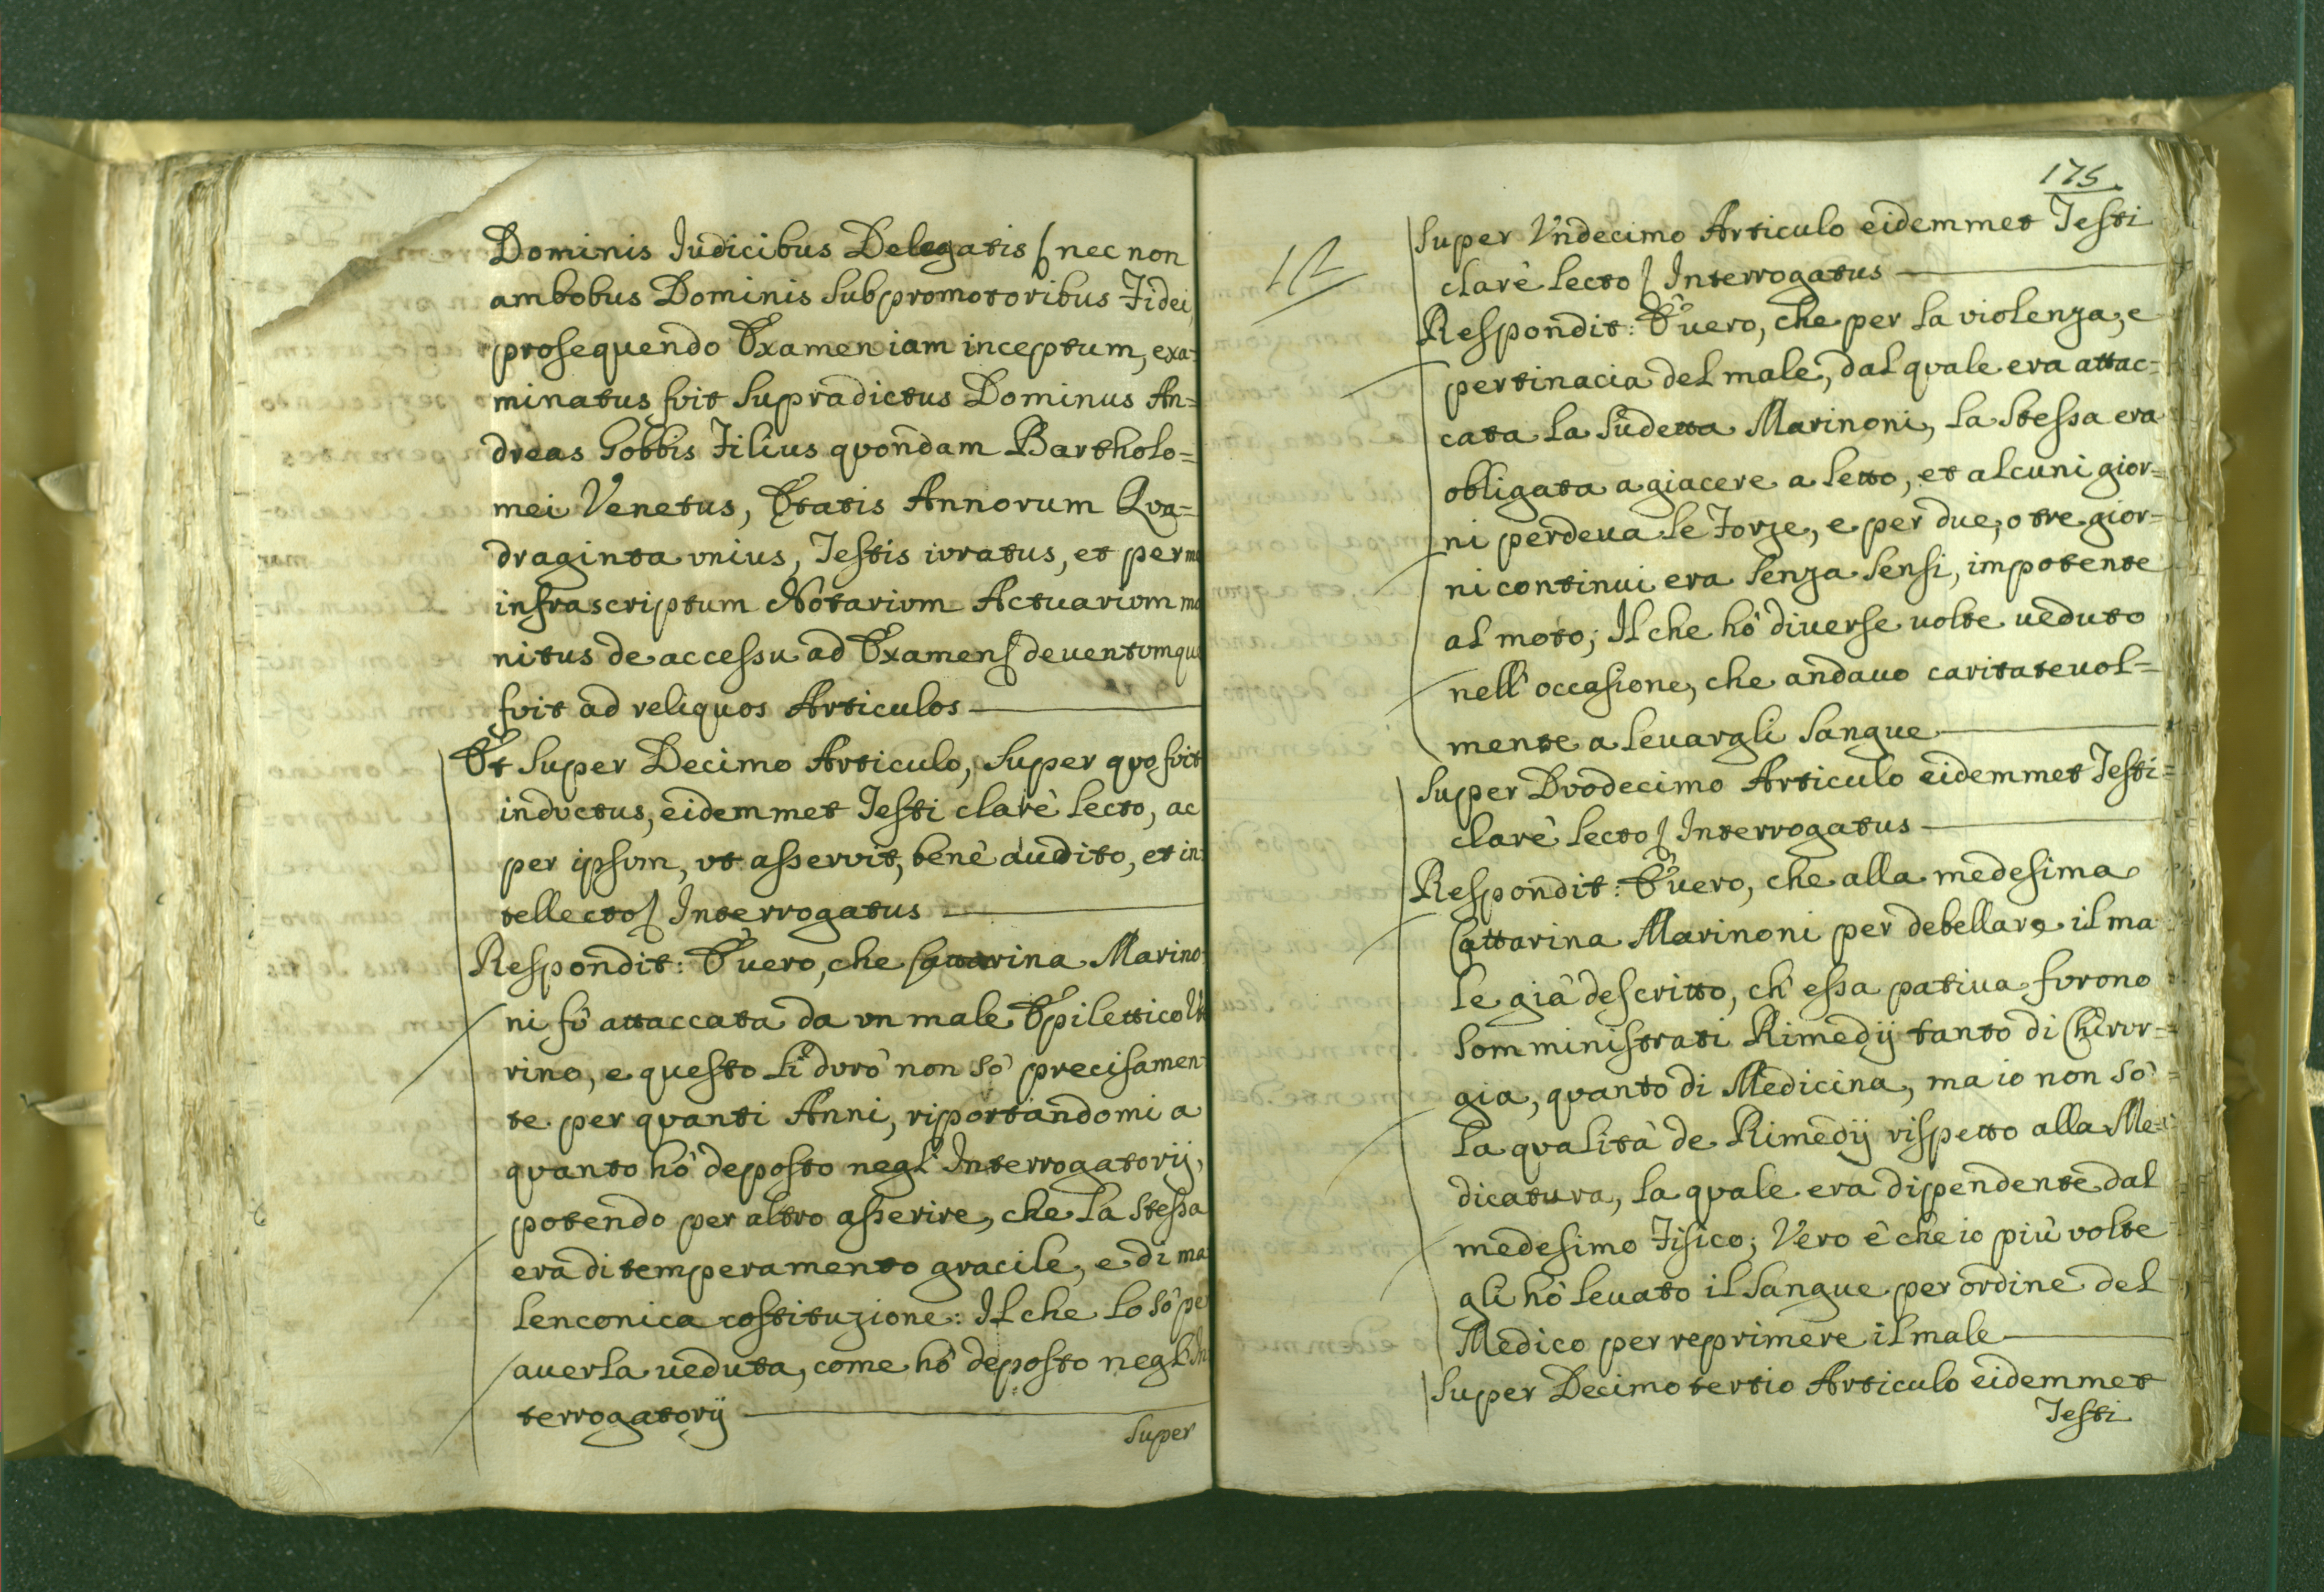 Dominis Iudicibus Delegatis nec non
ambobus Dominis Subpromotoribus Fidei,
prosequendo Examen iam inceptum, exa=
minatus fuit Supradictus Dominus An=
dreas Gobbis Filius quondam Bartholo=
mei Venetus, Ætatis Annorum Qua=
draginta unius, Testis iuratus, et per me
infrascriptum Notarium Actuarium mo
nitus de accessu ad Examen deventumque
fuit ad reliquos Articulos
Et Super Decimo Articulo, Super quo fuit
inductus, eidemmet Testi clarè lecto, ac
per ipsum, ut asseruit, benè audito, et in=
tellecto Interrogatus
Respondit: È uero, che Cattarina Marino=
ni fù attaccata da un male Epilettico Ute
rino, e questo li durò non sò precisamen=
te per quanti Anni, riportandomi a
quanto hò deposto negl' Interrogatorij,
potendo per altro asserire, che la Stessa
era di temperamento gracile, e di ma
lenconica costituzione: Il che lo sò per
auerla ueduta, come hò deposto negl' In
terrogatorij
Super
175
Super Undecimo Articulo eidemmet Testi
clarè lecto Interrogatus
Respondit: È uero, che per la violenza, e
pertinacia del male, dal quale era attac=
cata la Sudetta Marinoni, la Stessa era
obligata a giacere a letto, et alcuni gior=
ni perdeua le Forze, e per due, o tre gior=
ni continui era Senza Sensi, impotente
al moto; Il che hò diuerse uolte ueduto
nell' occasione, che andauo caritateuol=
mente a leuargli Sangue
Super Duodecimo Articulo eidemmet Testi=
clarè lecto Interrogatus
Respondit: È uero, che alla medesima
Cattarina Marinoni per debellare il ma
le già descritto, ch' essa patiua furono
Somministrati Rimedij tanto di Chirur=
gia, quanto di Medicina, ma io non sò
la qualità de Rimedij rispetto alla Me=
dicatura, la quale era dipendente dal
medesimo Fisico; Vero è che io più volte
gli hò leuato il Sangue per ordine del
Medico per reprimere il male
Super Decimo tertio Articulo eidemmet
Testi